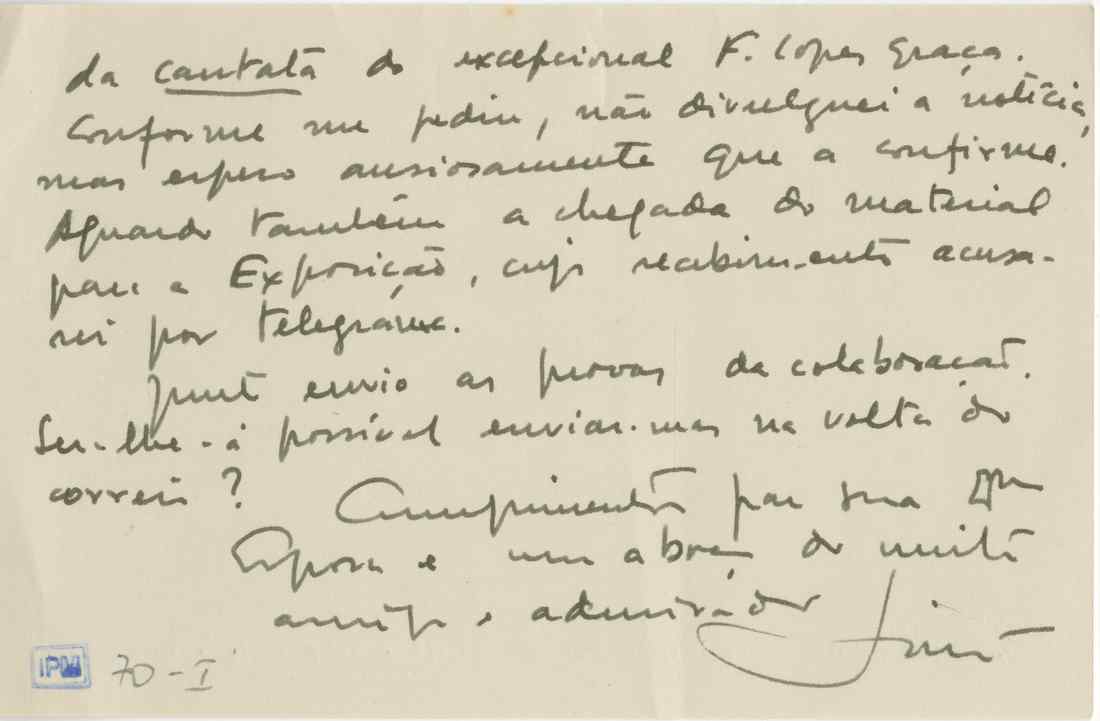 da cantata do excepcional F. Lopes Graça.
Conforme me pediu, não divulguei a notícia,
mas espero ansiosamente que a confirme.
Aguardo também a chegada do material
para a Exposição, cujo recebimento acusa-
rei por telegrama.
Junto envio as provas da colaboração.
Ser-lhe-á possível enviar-mas na volta do
correio?
Cumprimentos para sua Exma
Esposa e um abraço do muito
amigo e admirador
IPM 70-I